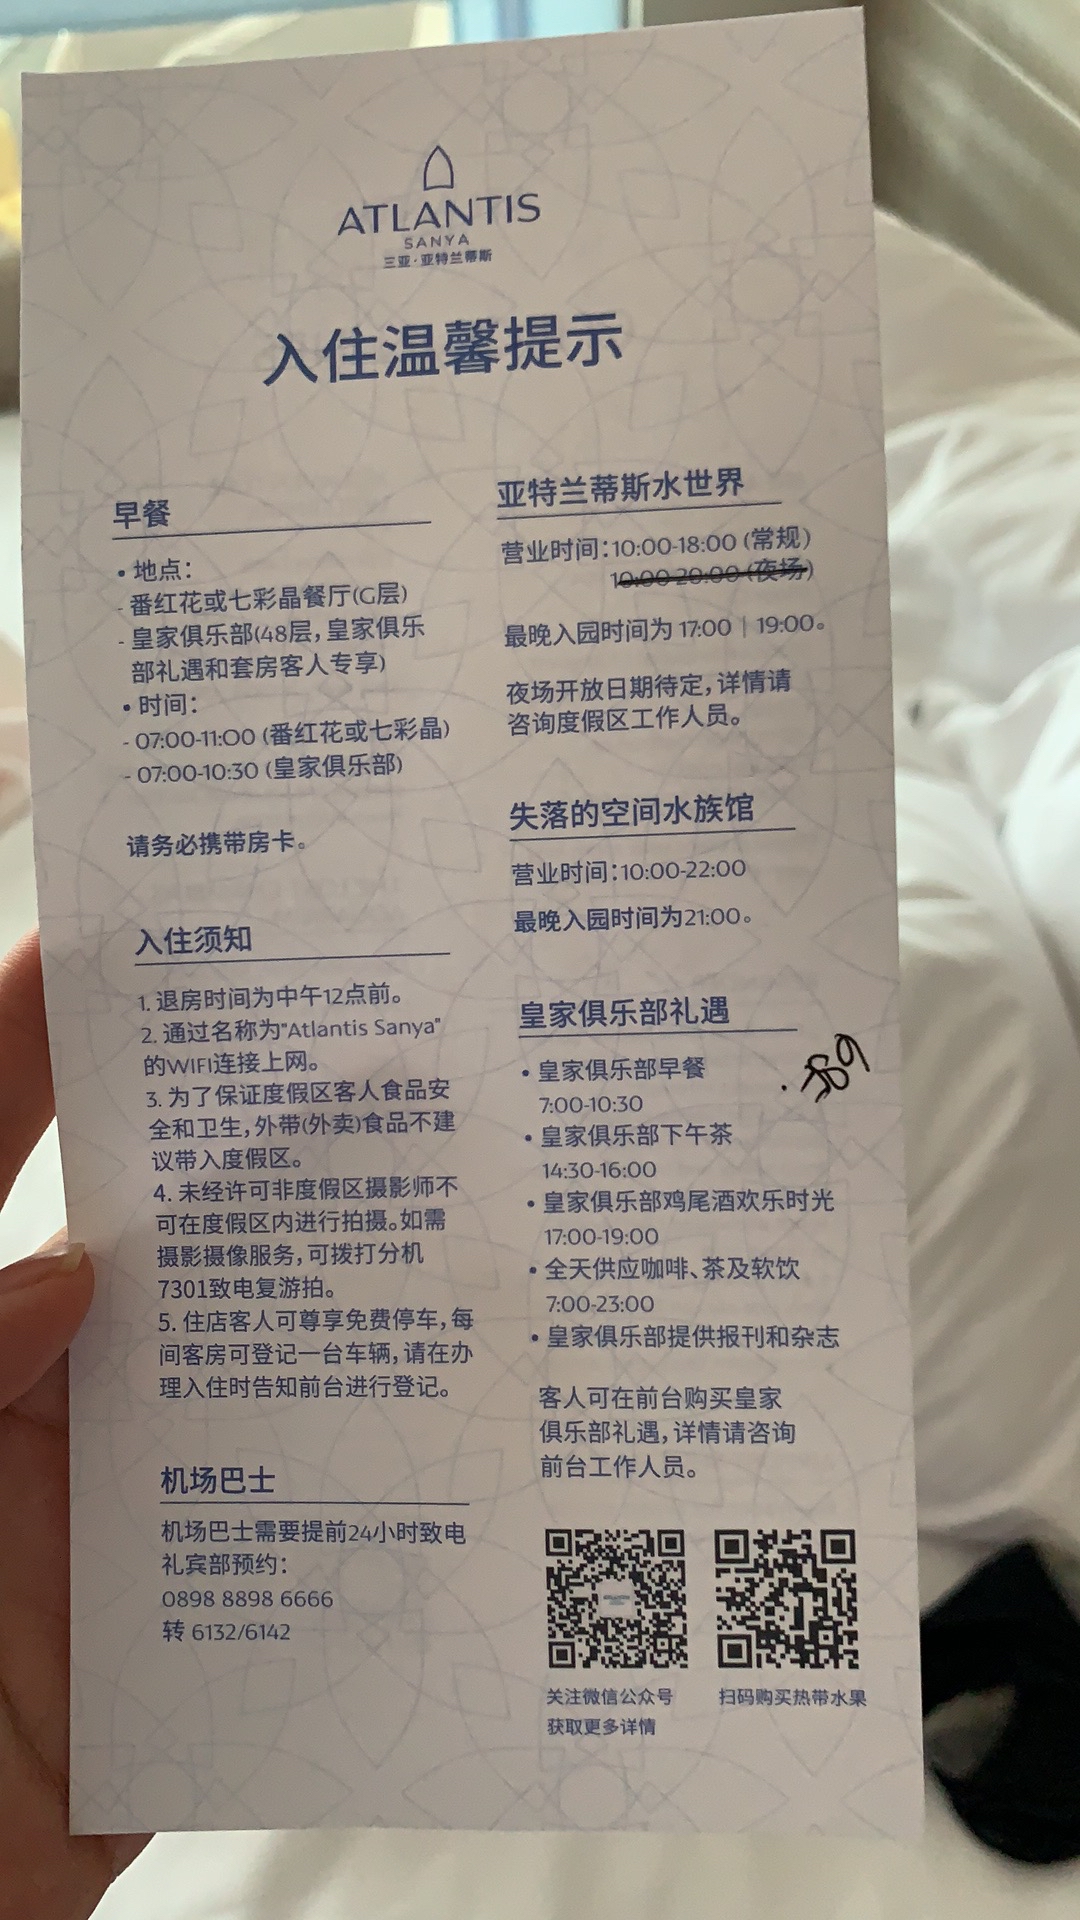 ATLANTIS
SANYA
三亚·亚特兰蒂斯
入住温馨提示
早餐
• 地点：
- 番红花或七彩晶餐厅(G层)
- 皇家俱乐部(48层，皇家俱乐
部礼遇和套房客人专享)
• 时间：
- 07:00-11:00 (番红花或七彩晶)
- 07:00-10:30 (皇家俱乐部)
请务必携带房卡。
入住须知
1. 退房时间为中午12点前。
2. 通过名称为"Atlantis Sanya"
的WIFI连接上网。
3. 为了保证度假区客人食品安
全和卫生，外带(外卖)食品不建
议带入度假区。
4. 未经许可非度假区摄影师不
可在度假区内进行拍摄。如需
摄影摄像服务，可拨打分机
7301致电复游拍。
5. 住店客人可尊享免费停车，每
间客房可登记一台车辆，请在办
理入住时告知前台进行登记。
机场巴士
机场巴士需要提前24小时致电
礼宾部预约：
0898 8898 6666
转 6132/6142
亚特兰蒂斯水世界
营业时间：10:00-18:00 (常规)
10:00-20:00 (夜场)
最晚入园时间为 17:00 | 19:00。
夜场开放日期待定，详情请
咨询度假区工作人员。
失落的空间水族馆
营业时间：10:00-22:00
最晚入园时间为21:00。
皇家俱乐部礼遇
• 皇家俱乐部早餐
7:00-10:30
• 皇家俱乐部下午茶
14:30-16:00
• 皇家俱乐部鸡尾酒欢乐时光
17:00-19:00
• 全天供应咖啡、茶及软饮
7:00-23:00
• 皇家俱乐部提供报刊和杂志
客人可在前台购买皇家
俱乐部礼遇，详情请咨询
前台工作人员。
关注微信公众号
获取更多详情
扫码购买热带水果